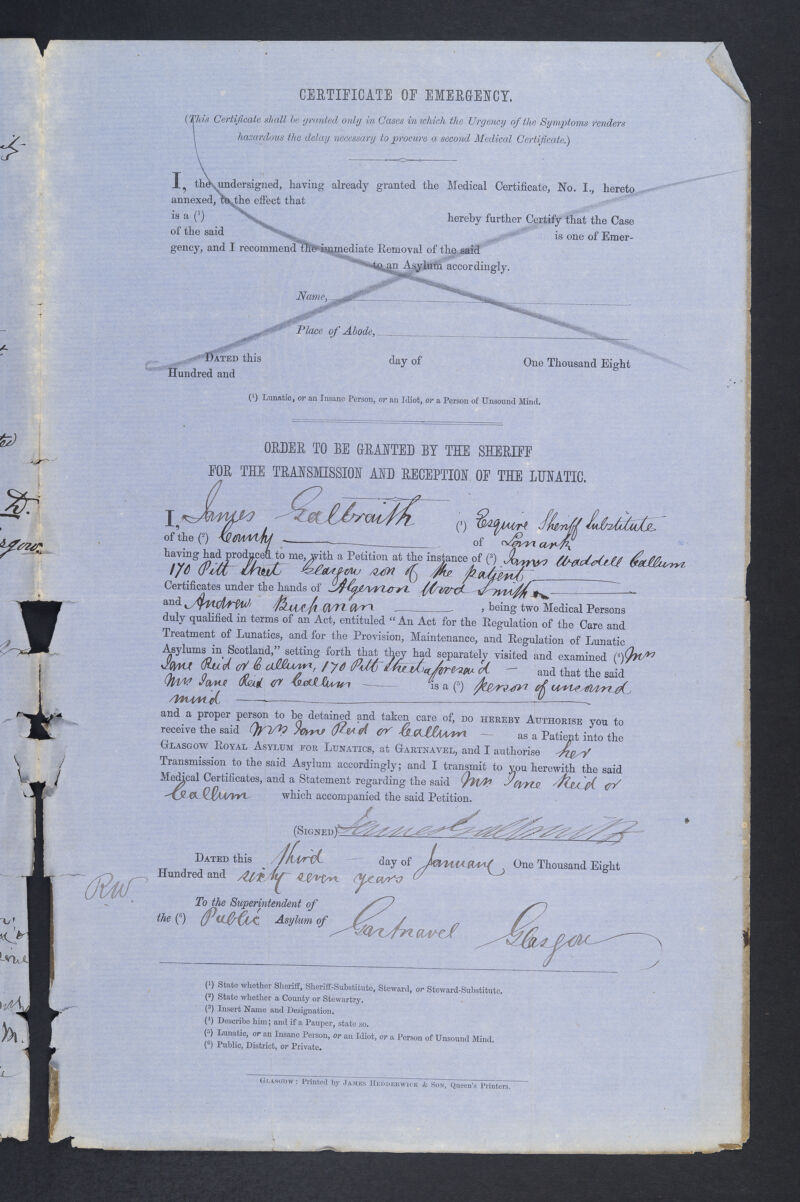 CERTIFICATE OF EMERGENCY.
(This Certificate shall be granted only in Cases in which the Urgency of the Symptoms renders
hazardous the delay necessary to procure a second Medical Certificate.)
I, the undersigned, having already granted the Medical Certificate, No. I., hereto
annexed, to the effect that
is a (¹) hereby further Certify that the Case
of the said is one of Emer-
gency, and I recommend the immediate Removal of the said
to an Asylum accordingly.
Name,
Place of Abode,
DATED this day of One Thousand Eight
Hundred and
(¹) Lunatic, or an Insane Person, or an Idiot, or a Person of Unsound Mind.
ORDER TO BE GRANTED BY THE SHERIFF
FOR THE TRANSMISSION AND RECEPTION OF THE LUNATIC.
I, James Galbraith (¹) Esquire Sheriff Substitute
of the (²) County of Lanark
having had produced to me, with a Petition at the instance of (³) James Waddell Callum
170 Pitt Street Glasgow son of the patient
Certificates under the hands of Algernon Wood Smith
and Andrew Buchanan , being two Medical Persons
duly qualified in terms of an Act, entituled "An Act for the Regulation of the Care and
Treatment of Lunatics, and for the Provision, Maintenance, and Regulation of Lunatic
Asylums in Scotland," setting forth that they had separately visited and examined (⁴) Mrs
Jane Reid or Callum, 170 Pitt Street aforesaid — and that the said
Mrs Jane Reid or Callum is a (⁵) person of unsound
mind
and a proper person to be detained and taken care of, DO HEREBY AUTHORISE you to
receive the said Mrs Jane Reid or Callum — as a Patient into the
GLASGOW ROYAL ASYLUM FOR LUNATICS, at GARTNAVEL, and I authorise her
Transmission to the said Asylum accordingly; and I transmit to you herewith the said
Medical Certificates, and a Statement regarding the said Mrs Jane Reid or
Callum which accompanied the said Petition.
(SIGNED) James Galbraith
DATED this third — day of January One Thousand Eight
Hundred and sixty seven years
R.W.
To the Superintendent of
the (⁶) Public Asylum of Gartnavel Glasgow
(¹) State whether Sheriff, Sheriff-Substitute, Steward, or Steward-Substitute.
(²) State whether a County or Stewartry.
(³) Insert Name and Designation.
(⁴) Describe him; and if a Pauper, state so.
(⁵) Lunatic, or an Insane Person, or an Idiot, or a Person of Unsound Mind.
(⁶) Public, District, or Private.
GLASGOW: Printed by JAMES HEDDERWICK & SON, Queen's Printers.